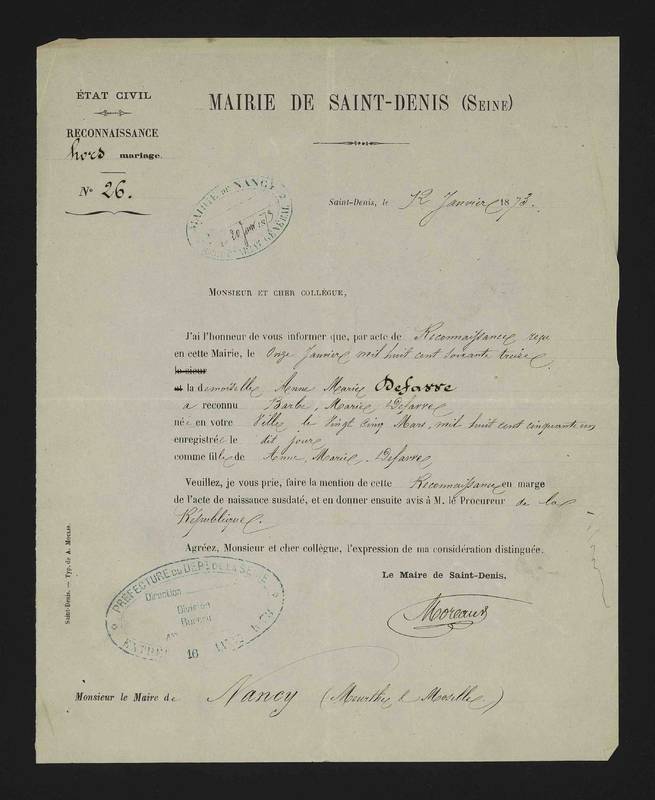 ÉTAT CIVIL
RECONNAISSANCE
hors mariage.
N° 26.
MAIRIE DE SAINT-DENIS (SEINE)
MAIRIE DE NANCY
20 Janv 1873
SECRÉTARIAT GÉNÉRAL
Saint-Denis, le 12 Janvier 1873.
MONSIEUR ET CHER COLLÈGUE,
J'ai l'honneur de vous informer que, par acte de Reconnaissance reçu
en cette Mairie, le Onze Janvier mil huit cent soixante treize
le sieur
et la demoiselle Anne Marie Defasse
a reconnu Barbe, Marie Defasse
née en votre Ville le Vingt Cinq Mars, mil huit cent cinquante un
enregistrée le dit jour
comme fille de Anne, Marie, Defasse
Veuillez, je vous prie, faire la mention de cette Reconnaissance en marge
de l'acte de naissance susdaté, et en donner ensuite avis à M. le Procureur de la
République.
Agréez, Monsieur et cher collègue, l'expression de ma considération distinguée.
Le Maire de Saint-Denis,
Moreaux
PRÉFECTURE DU DÉPT DE LA SEINE
Direction
Division
Bureau
16 JANV 1873
Monsieur le Maire de Nancy (Meurthe & Moselle)
Saint-Denis. — Typ. de A. MOULIN.